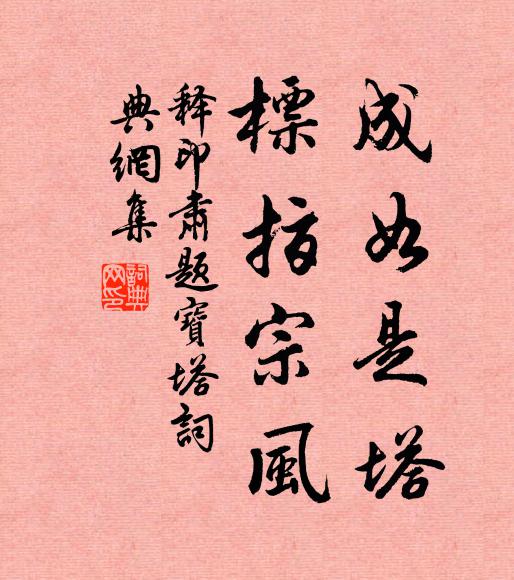 成如是塔
標指宗風
释印肃题寶塔詞
典網集
詞典網印